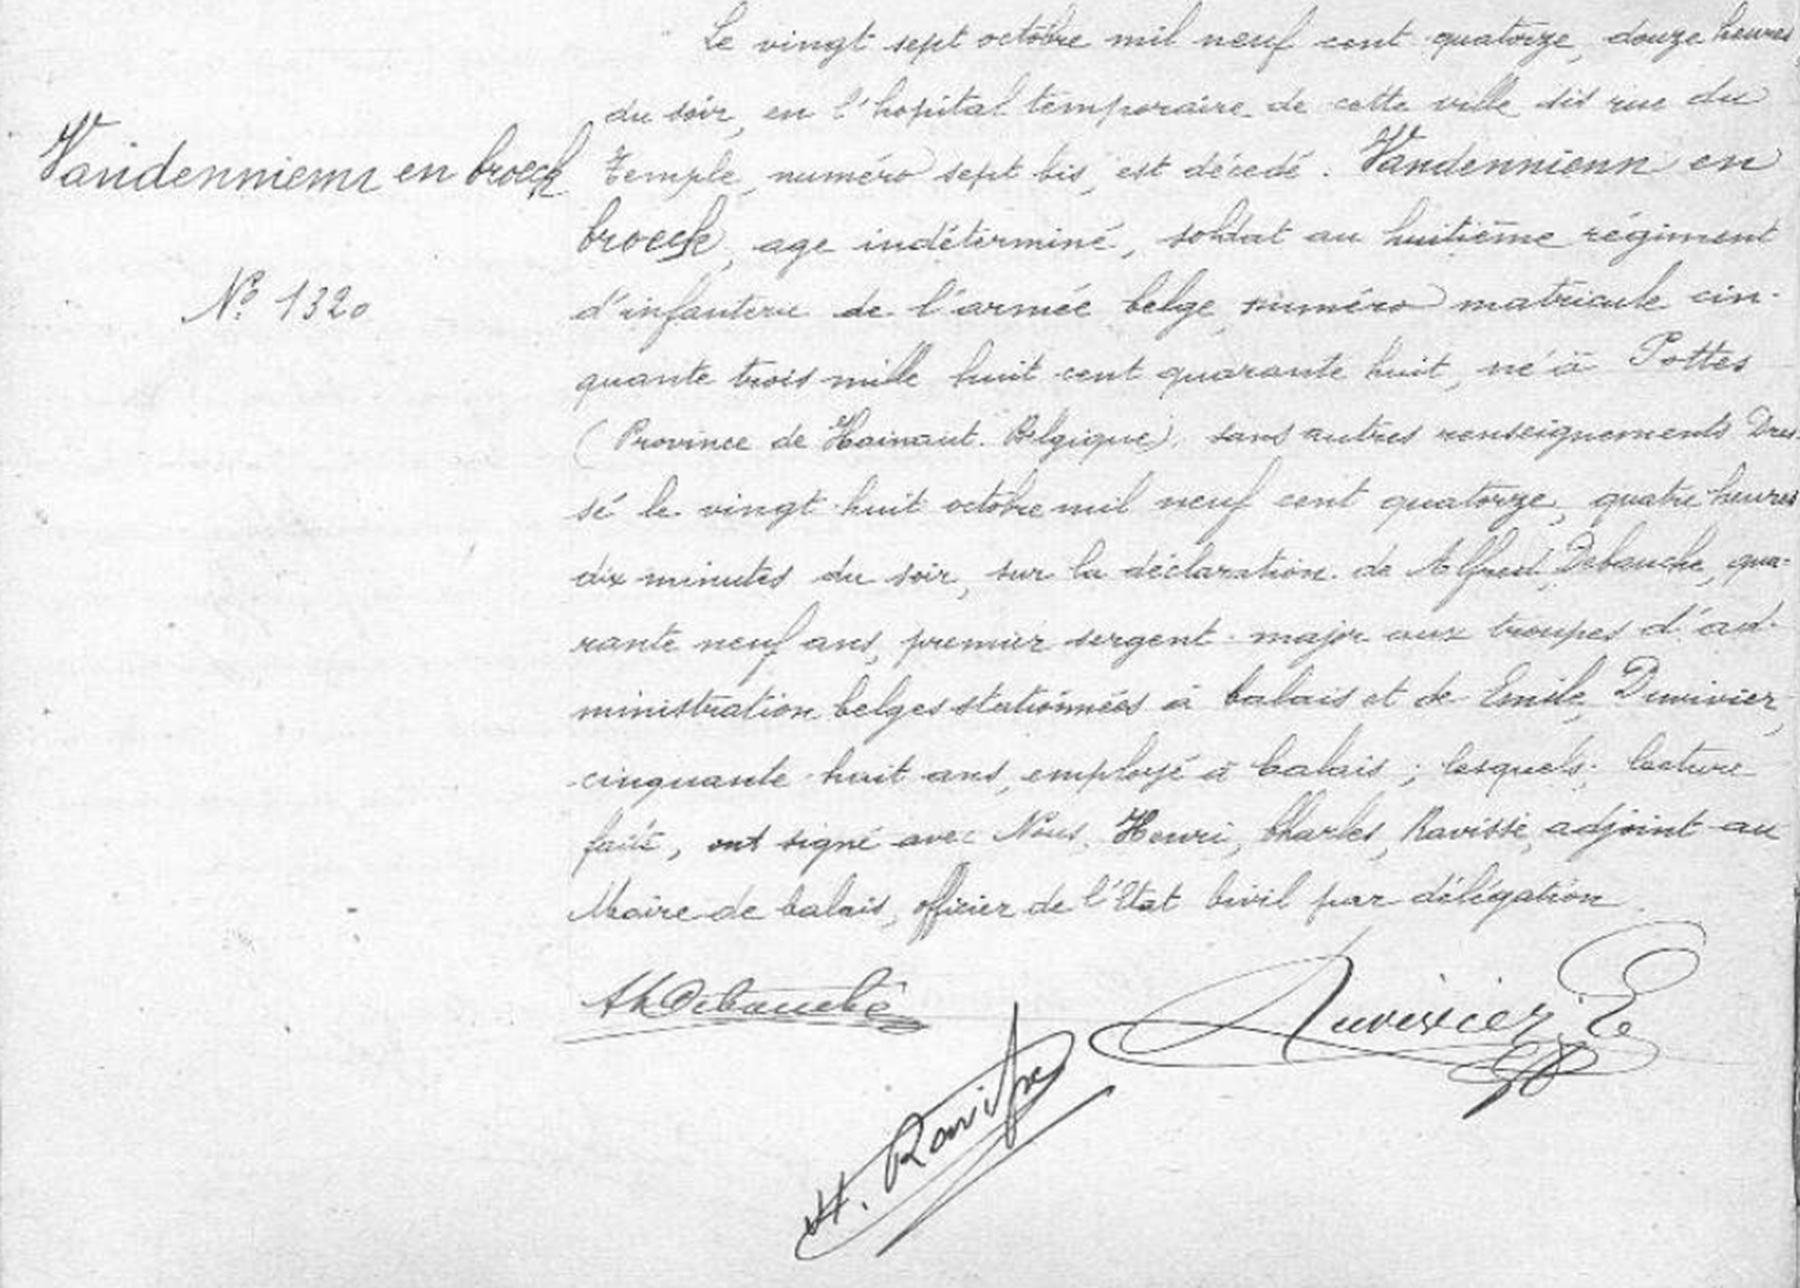 Le vingt sept octobre mil neuf cent quatorze, douze heures
du soir, en l'hopital temporaire de cette ville sis rue du
Temple, numéro sept bis, est décedé. Vandennienn en
broeck, age indéterminé, soldat au huitième régiment
d'infanterie de l'armée belge numéro matricule cin-
quante trois mille huit cent quarante huit, né à Pottes
(Province de Hainaut. Belgique), sans autres renseignements Dres-
sé le vingt huit octobre mil neuf cent quatorze, quatre heures
dix minutes du soir, sur la déclaration de Alfred, Debauche, qua-
rante neuf ans, premier sergent-major aux troupes d'ad-
ministration belges stationnées à Calais et de Emile, Duvivier,
cinquante huit ans, employé à Calais ; lesquels, lecture
faite, ont signé avec Nous, Henri, Charles, Ravisse, adjoint au
Maire de Calais, officier de l'Etat Civil par délégation
Vandennienn en broeck
No 1320
Debauche
Duvivier E
H. Ravisse